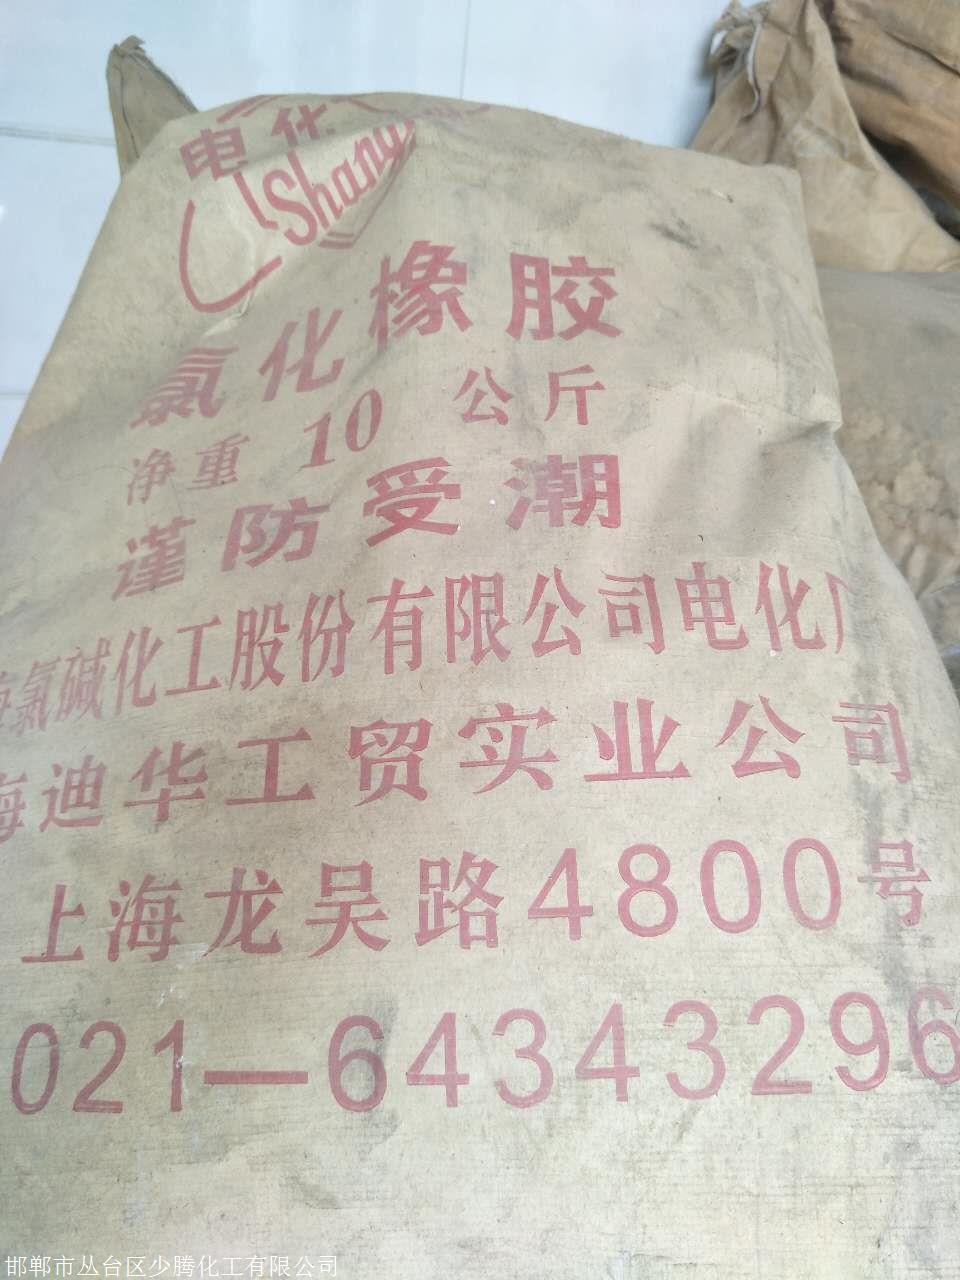 电化
Shang
氯化橡胶
净重 10 公斤
谨防受潮
海氯碱化工股份有限公司电化厂
海迪华工贸实业公司
上海龙吴路4800号
021—64343296
邯郸市丛台区少腾化工有限公司